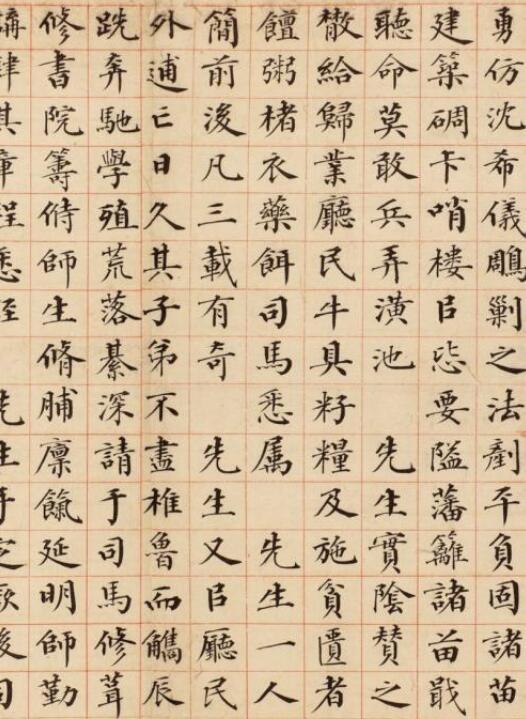 勇仿沈希儀鵰剿之法剷平負固諸苗
建築碉卡哨楼㠯毖要隘藩籬諸苗戢
聽命莫敢兵弄潢池 先生實陰賛之
㪚給歸業廳民牛具籽糧及施貧匱者
饘粥楮衣藥餌司馬悉属 先生一人
簡前後凡三載有奇 先生又㠯廳民
外逋亡日久其子弟不盡椎魯而觿辰
跣奔馳學殖荒落綦深請于司馬修葺
修書院籌偫師生脩脯廩餼延明師勤